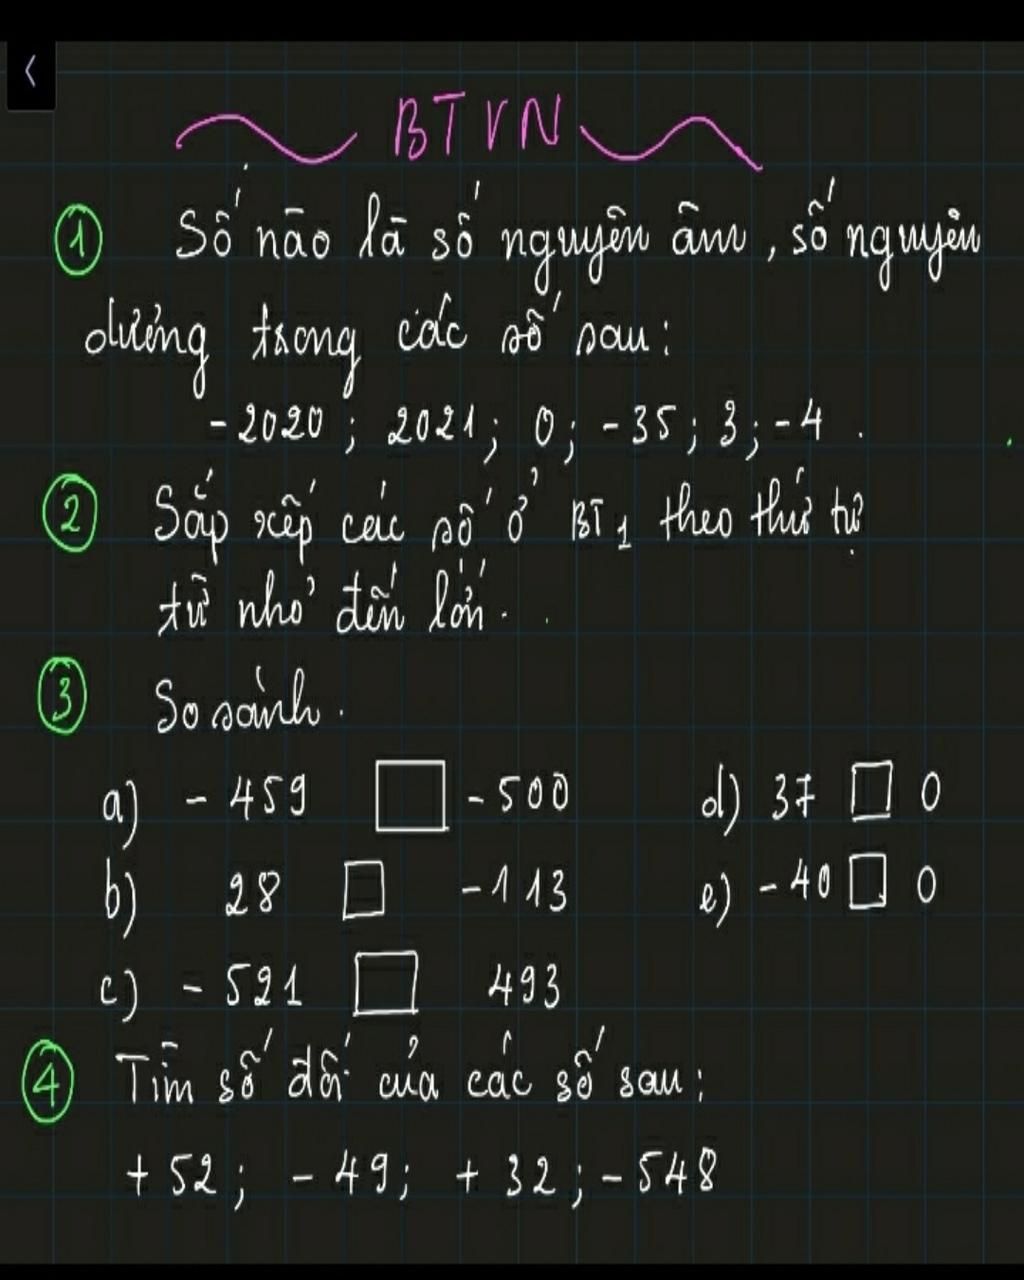 BTVN
① Số nào là số nguyên âm, số nguyên
dương trong các số sau:
-2020; 2021; 0; -35; 3; -4.
② Sắp xếp các số ở BT1 theo thứ tự
từ nhỏ đến lớn.
③ So sánh.
a) -459 □ -500 d) 37 □ 0
b) 28 □ -113 e) -40 □ 0
c) -521 □ 493
④ Tìm số đối của các số sau:
+52; -49; +32; -548